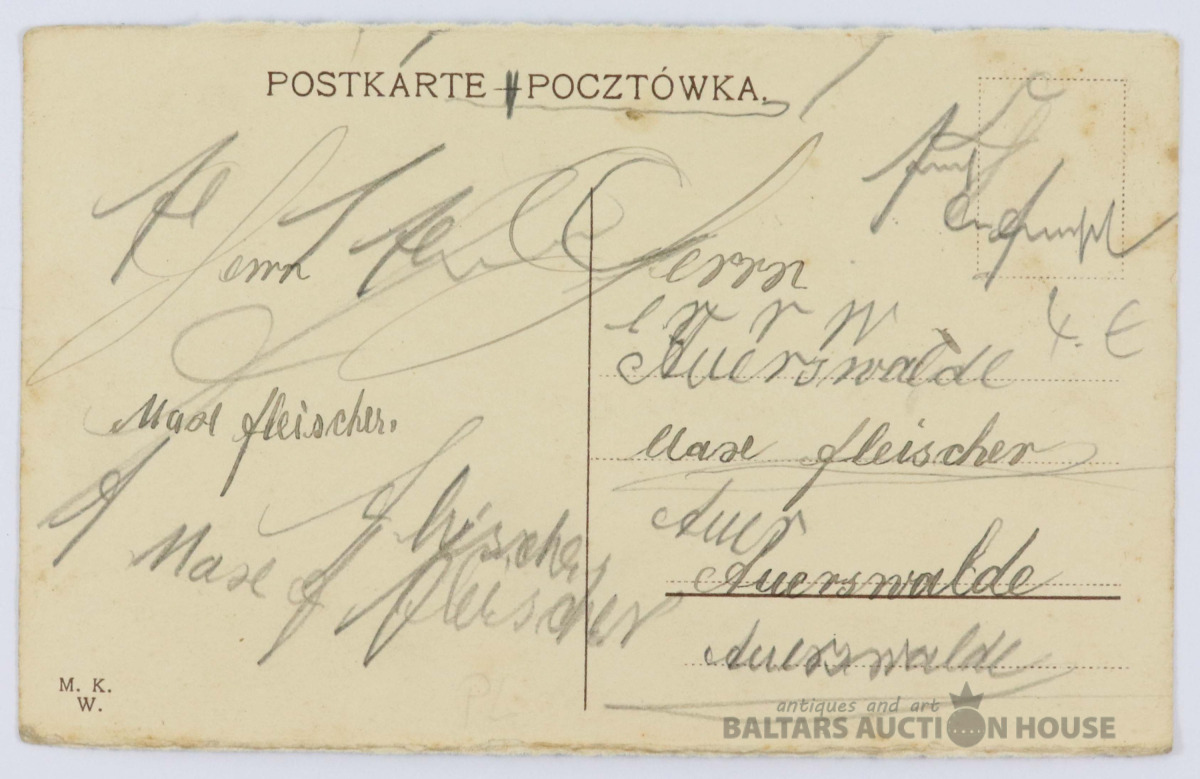 POSTKARTE - POCZTÓWKA.
Herrn
Max Fleischer.
Fleischer
Max Fleischer
Herrn
Auerswalde
Max Fleischer
Auer
Auerswalde
Auerswalde
4. €
M. K.
W.
antiques and art
BALTARS AUCTION HOUSE